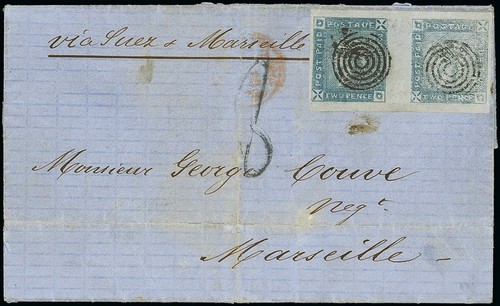 via Suez & Marseille
POSTAGE
POST PAID
TWO PENCE
POSTAGE
POST PAID
TWO PENCE
8
Monsieur George Couve
Negt.
Marseille